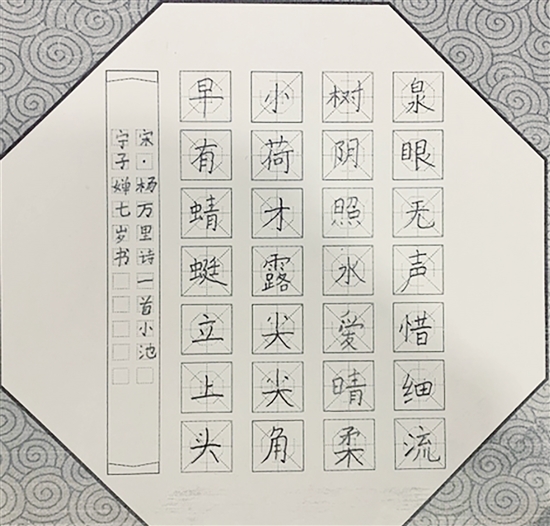 泉眼无声惜细流
树阴照水爱晴柔
小荷才露尖尖角
早有蜻蜓立上头
宋·杨万里诗一首小池
宁子婵七岁书